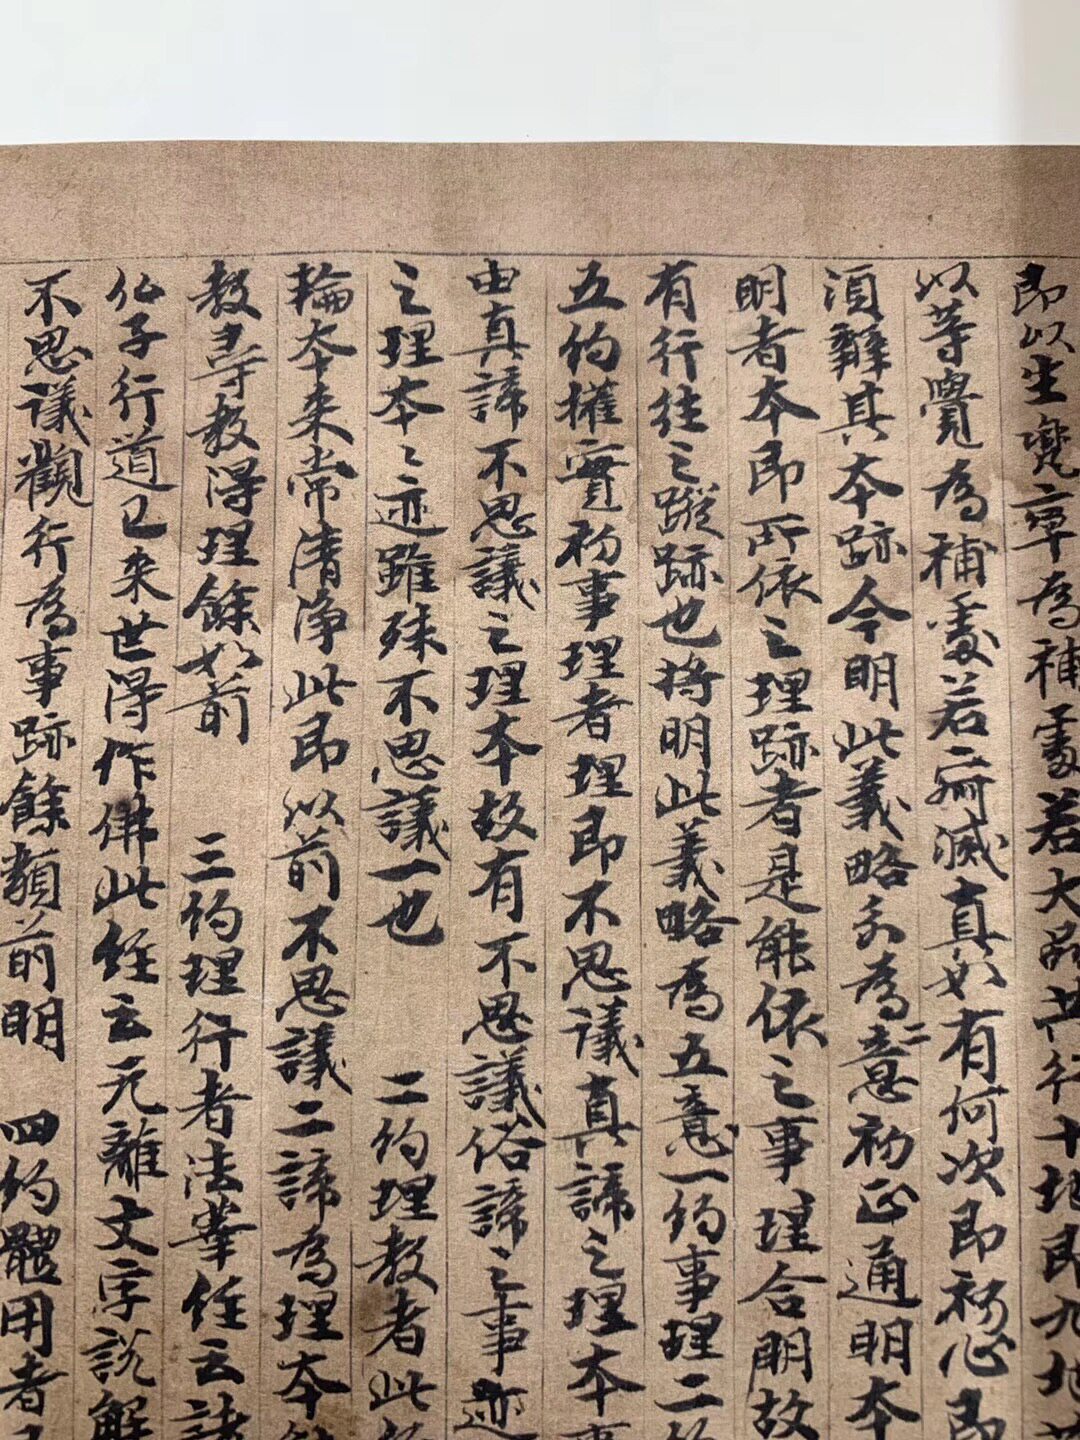 即以生變二章為補處若大品共行十地即九地菩
以等覺為補處若二死滅真如有何次即初心即
須釋其本跡今明此義略爲二意初正通明本
明者本即所依之理跡者是能依之事理合明故
有行往之蹤跡也將明此義略為五意一約事理二約
五約權實初事理者理即不思議真諦之理本事
由真諦不思議之理本故有不思議俗諦之事迹
之理本之迹雖殊不思議一也　二約理教者此
輪本來常清淨此即以前不思議二諦為理本
教尋教得理餘如前　三約理行者法華經云諸
仏子行道已來世得作佛此經云无離文字說解
不思議觀行為事跡餘類前明　四約體用者